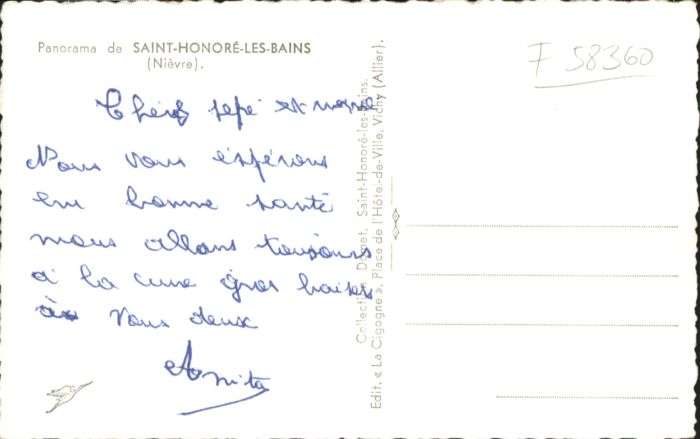 Panorama de SAINT-HONORÉ-LES-BAINS
(Nièvre).
F 58360
Chers pépé et mémé
Nous vous espérons
en bonne santé
nous allons toujours
à la cure gros baisers
à vous deux
Anita
Collection Dranet, Saint-Honoré-les-Bains.
Edit. « La Cigogne », Place de l'Hôtel-de-Ville, Vichy (Allier).